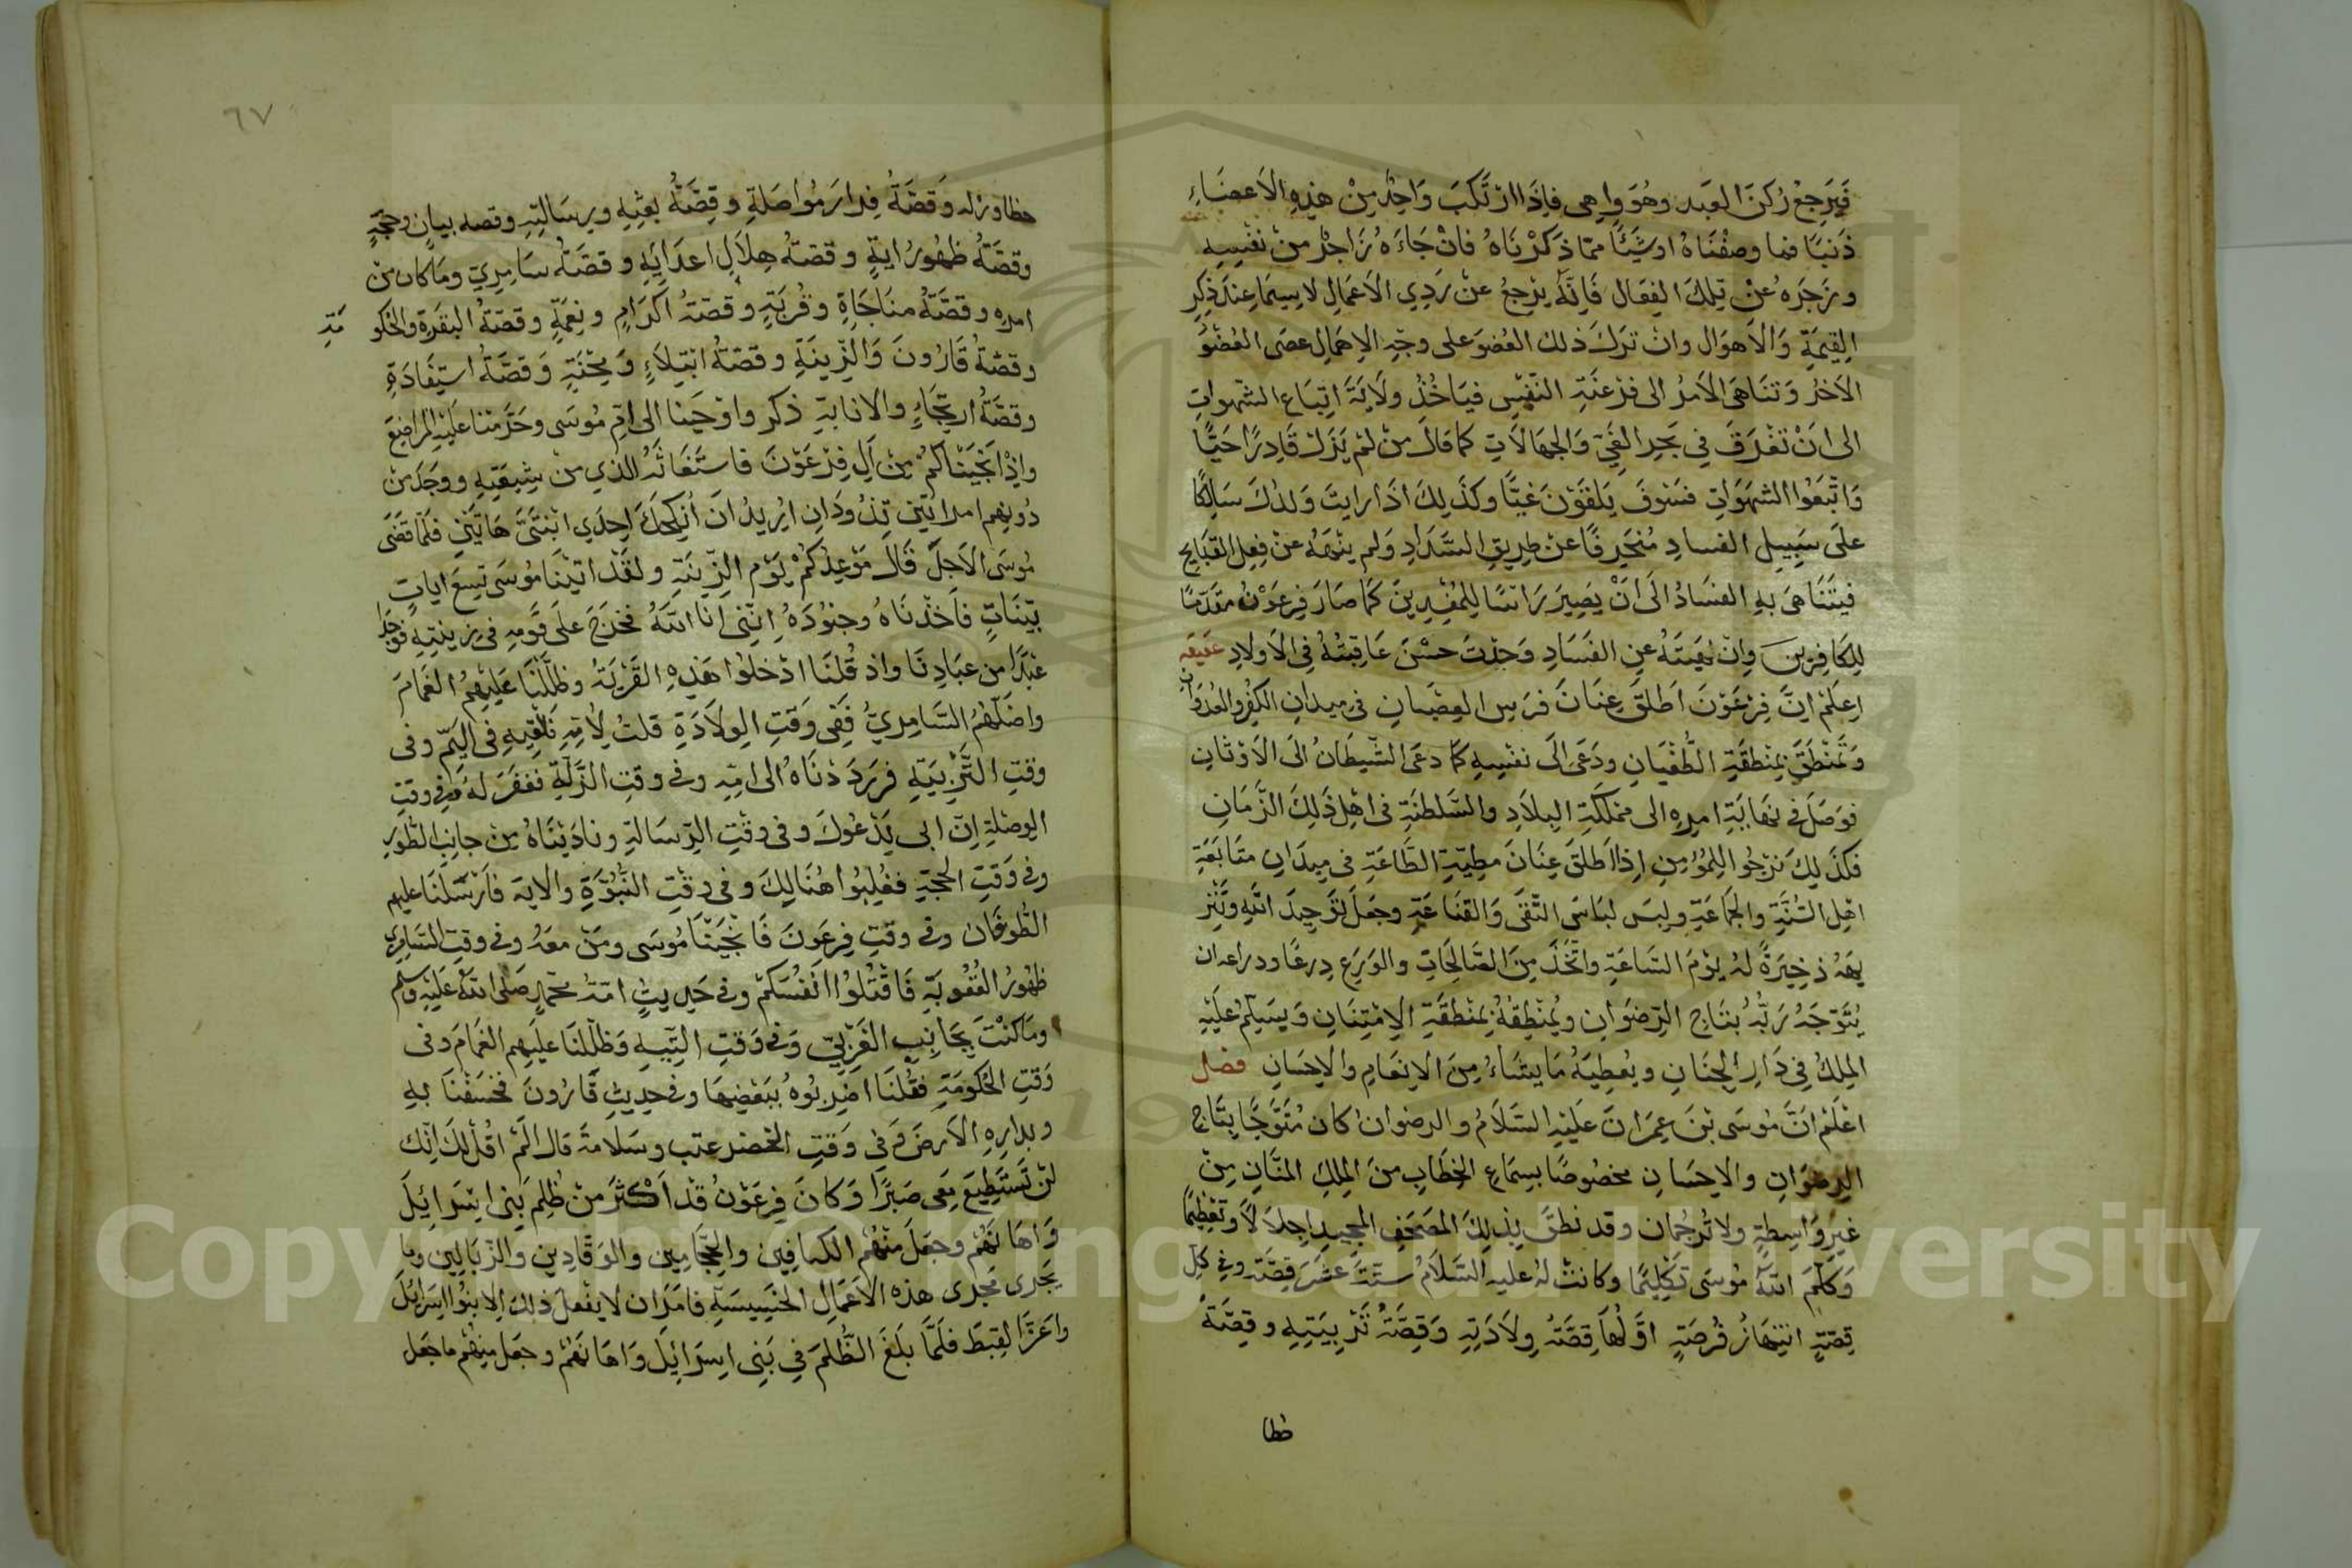 فَيَرجِعْ رُكنَ العَبد وهُوَ واهى فاِذَا ارْتَكبَ وَاحِدٌ مِنْ هٰذِهِ الاَعضَاءِ
ذَنبًا فما وصفْنَاهُ اوشَيئًا ممّا ذَكرْنَاهُ فانْ جَاءَهُ زَاجرٌ منْ نفْسِهِ
وزَجَرَهُ عنْ تِلكَ الفِعَال فَاِنّهُ يرْجعُ عنْ رَدِي الاَعمَالِ لاسِيمَا عِندَ ذِكرِ
القِيمَةِ وَالاَهوَال وانْ ترَكَ ذلك العُضوَ على وجْهِ الاِهمَالِ عصَى العُضْوُ
الاَخرُ وَتنَاهَى الاَمرُ الى فرْعنَةِ النّفْسِ فيَاخُذُ ولَايَةَ اتِبَاعِ الشّهواتِ
الى انْ تغْرَقَ فِي بَحرِ الغَيّ وَالجهَالَاتِ كما قَالَ منْ لمْ يَزَلْ قَادِرًا حَيًّا
وَاتّبَعُوا الشهَوَاتِ فسَوفَ يَلقَوْنَ غيًّا وكذَلِكَ اذَا رايتَ وَلدَكَ سَالِكًا
علَى سَبِيلِ الفسادِ مُنحَرِفًا عنْ طرِيقِ السّدَادِ وَلم ينْهَهُ عنْ فِعلِ القبَايحِ
فيتَنَاهَى بهِ الفسَادُ الَى انْ يَصِيرَ رَاسًا لِلمُفسِدِينَ كمَا صَارَ فِرعَوْنُ مقدّمًا
لِلكافِرِينَ وَاِنْ نهَيتَهُ عنِ الفَسَادِ وَجدْتَ حسْنَ عَاقِبَتُهُ فِى الاَولَادِ
اِعلَمْ اِنَّ فِرْعَوْنَ اَطلَقَ عِنَانَ فرَسِ العِصْيانِ فى ميدانِ الكفْرِ والعُدوَانِ
وَتمَنْطَقَ بِمنْطقَةِ الطُّغْيَانِ ودَعَى الَى نفْسِهِ كمَا دعَى الشّيطَانُ الَى الاَوْثَانِ
فوَصَلَ فى نهَايَةِ امرِهِ الى مملكَةِ البِلَادِ والسَّلطنَةِ فى اهْلِ ذَلِكَ الزَّمَانِ
فكذَلِكَ نرْجُوا لِلمُؤمِنِ اِذَا اَطلَقَ عِنَانَ مطِيّةِ الطَّاعَةِ فى مِيدَانِ متَابَعَةِ
اهْلِ السُّنَّةِ والجَمَاعَةِ ولبَسَ لبَاسَ التّقَى وَالقنَاعَةِ وجعَلَ توْحِيدَ اللّهِ وتنْز
يهَهُ ذخِيرَةً لهُ يوْمَ السّاعَةِ واتّخَذَ مِنَ الصّالِحَاتِ والوَرَعِ دِرعًا
يُتَوّجَهُ رَبّهُ بتَاجِ الرّضوَانِ ويُمنْطِقهُ بِمنْطقَةِ الاِمْتِنَانِ وَيسَلّمُ علَيْهِ
المِلكُ فِي دَارِ الجِنَانِ وَيُعطِيَهُ مَا يشَاءُ مِنَ الاِنعَامِ والاِحسَانِ فصل
اعْلَمْ اَنَّ مُوسَى بْنَ عِمرَانَ عَلَيْهِ السّلَامُ والرضوان كان مُتَوَّجًا بِتَاجِ
الرِضوَانِ والاِحسَانِ مخصُوصًا بسِمَاعِ الخِطَابِ منَ المِلكِ المنّانِ مِنْ
غيرِ وَاسِطةٍ ولا تُرجُمان وقد نطقَ بِذلِكَ المصْحَفِ المجيدِ اِجلَالًا وتعْظِيمًا
وَكلّمَ اللّهُ مُوسَى تكْلِيمًا وكانتْ لهُ عليهِ السّلَامُ ستّةَ عشَرَ قِصّة وفِى كلّ
قِصّةٍ انتِهَازُ فُرصَةٍ اوّلُهَا قِصّةُ وِلَادَتِهِ وَقِصّةُ تَرْبِيَتِهِ وقِصّةُ
خطا
خطا وزله وَقصّةُ فِرارَ مُواصَلةِ وقِصّةُ بعثِهِ ورِسَالتِهِ وقصه بيانٍ وحجّةٍ
وقصّةُ ظهُورُ ايةٍ وقصّةُ هِلَاكِ اعدَايَهِ وقصّةُ سَامِرِيّ ومَا كان من
امرِهِ وقصّةُ منَاجَاةِ وقُربَةٍ وقصّةُ اكرَامٍ ونِعْمَةٍ وقصّةُ البقَرَةِ والحكو مَةِ
وقصّةُ قَارُونَ وَالزّينَةِ وقصّةُ ابْتِلَاءٍ وَمِحْنَةٍ وَقصّةُ استِفَادَةِ
وقصّةُ ارتِجَاءٍ والانابةِ ذكر واوْحَينا الى امّ مُوسَى وحَرّمْنا علَيهِ المرَاضِعَ
واِذْ انجَيْنَاكمْ مِنْ اٰلِ فِرْعَوْنَ فاستَغاثَهُ الذي منْ شِيعَتِهِ ووجَدَ منْ
دُونِهِم امراتَينِ تذُودَانِ اِنِّي اُرِيدُ انَ اُنْكِحَكَ اِحدَى ابْنَتَىَّ هَاتَيْنِ فلَمّا قضَى
مُوسَى الاَجلَ قَالَ مَوْعِدُكمْ يَوْم الزّينَةِ ولقَدْ اتيْنَا مُوسَى تِسعَ اياتٍ
بيّنَاتٍ فاَخذْنَاهُ وجنُودَهُ اِنّنِى انا اللّهُ فخرَجَ علَى قَومِهِ فى زِينتِهِ فوَجدَا
عَبْدًا من عبَادِنَا واذ قُلنَا ادْخلوا هَذِهِ القَرْيَةَ وظلّلْنَا عَلَيْهِمُ الغَمَامَ
واضَلّهُمُ السَّامِرِيُّ فَفِى وَقتِ الوِلَادَةِ قلتُ لِاُمّهِ فَلْقِيهِ فى اليَمّ وفى
وقتِ التَّرْبيَةِ فرَدَدْنَاهُ الى امِّهِ وفى وقتِ الزّلّةِ فغفَرَ لهُ وفى وقتِ
الوصْلةِ اِنّ ابى يَدْعُوكَ وفى وقْتِ الرّسَالةِ ونادَيْنَاهُ مِنْ جانِبِ الطّورِ
وفى وَقتِ الحجّةِ فغُلِبُوا هُنَالِكَ وفى وقْتِ النّبُوّةِ والاية فَاَرْسَلنَا عليهم
الطّوفَان وفى وقتِ فِرعَونَ فَانْجَيْنَا مُوسَى ومَنْ معَهُ وفى وقتِ السّامِرِى
ظهُورُ العُقُوبَةِ فَاقْتُلُوا انْفُسَكمْ وفى حَدِيثِ امّةِ محمّدٍ صَلى اللّهُ علَيْهِ وسلم
ومَا كنْتَ بجَانِبِ الغَرْبِيّ وَفى وَقتِ التّيهِ وَظلّلْنَا علَيهِمِ الغَمَامَ وفى
وَقتِ الحُكومَةِ فقُلنَا اضْرِبُوهُ ببَعْضِهَا وفى حدِيثِ قَارُونَ فخسَفْنَا بهِ
وبدارِهِ الاَرضَ وَفى وَقتِ الخضر عتب وسَلَامةً قال الَمْ اقُلْ لكَ اِنّك
لنْ تَسْتَطِيعَ مَعِى صَبرًا وَكانَ فِرعَوْنُ قدْ اَكْثرَ منْ ظلِمِ بَنِى اِسْرَائِيلَ
وَاهَانَهُمْ وجعَلَ منْهُم الكسافِينَ والحجّامِينَ والوَقّادِينِ وَالزّبَالِينَ وما
يَجْرى مَجْرى هذه الاَعمَالِ الخَسِيسَةِ فامَرَ ان لا يفْعلَ ذلِكَ اِلا بنُوا اسرَائِلَ
واعَزّ القِبطَ فلَمّا بلَغَ الظُّلمَ فِي بَنِى اِسرَائِلَ وَاهَانَهُمْ وجعَل مِنهُمْ ما جعَل
٦٧
Copyright © King Saud University